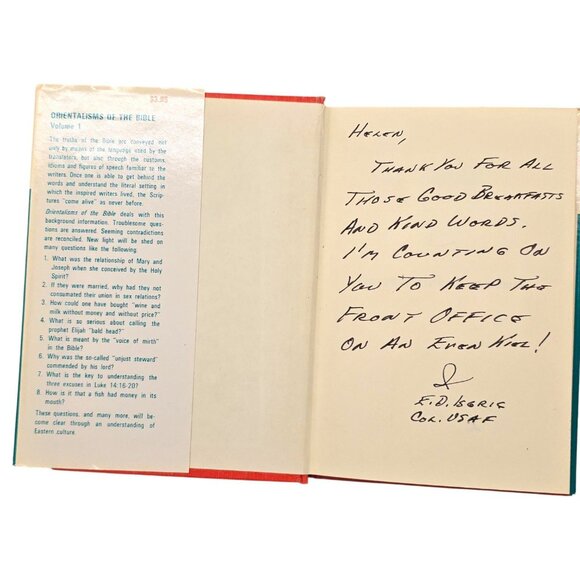 $3.95
ORIENTALISMS OF THE BIBLE
Volume 1
The truths of the Bible are conveyed not
only by means of the language used by the
translators, but also through the customs,
idioms and figures of speech familiar to the
writers. Once one is able to get behind the
words and understand the literal setting in
which the inspired writers lived, the Scrip-
tures "come alive" as never before.
Orientalisms of the Bible deals with this
background information. Troublesome ques-
tions are answered. Seeming contradictions
are reconciled. New light will be shed on
many questions like the following:
1. What was the relationship of Mary and
Joseph when she conceived by the Holy
Spirit?
2. If they were married, why had they not
consumated their union in sex relations?
3. How could one have bought "wine and
milk without money and without price?"
4. What is so serious about calling the
prophet Elijah "bald head?"
5. What is meant by the "voice of mirth" in
the Bible?
6. Why was the so-called "unjust steward"
commended by his lord?
7. What is the key to understanding the
three excuses in Luke 14:16-20?
8. How is it that a fish had money in its
mouth?
These questions, and many more, will be-
come clear through an understanding of
Eastern culture.
HELEN,
THANK YOU FOR ALL
THOSE GOOD BREAKFASTS
AND KIND WORDS.
I'M COUNTING ON
YOU TO KEEP THE
FRONT OFFICE
ON AN EVEN KIEL!
E.D.
COL. USAF